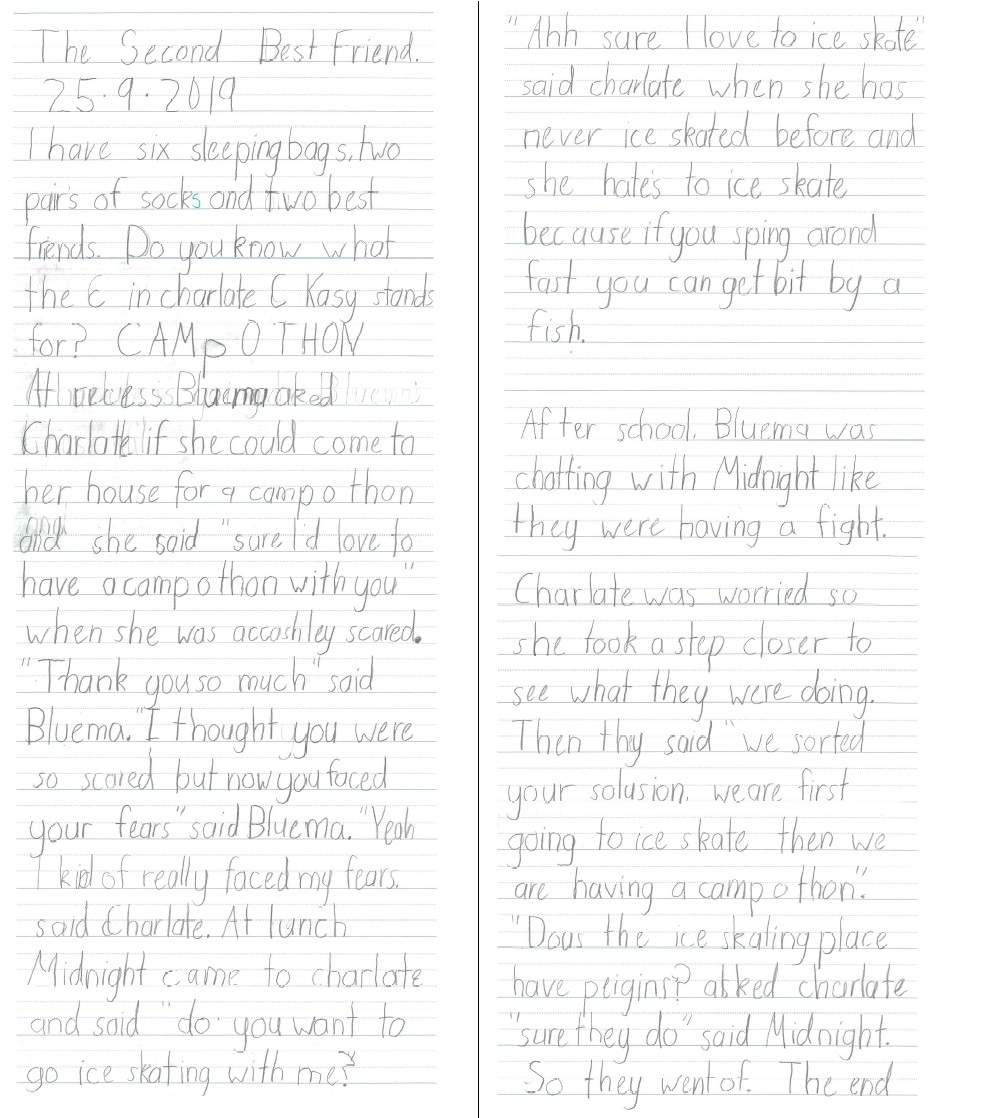 The Second Best Friend.
25.9.2019
I have six sleepingbags, two
pairs of socks and two best
friends. Do you know what
the C in charlate C Kasy stands
for? CAMp O THON
At recess Bluema aked
Charlate if she could come to
her house for a camp o thon
and she said "sure I'd love to
have a camp o thon with you"
when she was accoshley scared.
"Thank you so much" said
Bluema. "I thought you were
so scared but now you faced
your fears" said Bluema. "Yeah
I kid of really faced my fears.
said Charlate. At lunch
Midnight came to charlate
and said "do you want to
go ice skating with me?"
"Ahh sure I love to ice skate"
said charlate when she has
never ice skated before and
she hate's to ice skate
because if you sping arond
fast you can get bit by a
fish.
After school. Bluema was
chatting with Midnight like
they were having a fight.
Charlate was worried so
she took a step closer to
see what they were doing.
Then thy said "we sorted
your solusion. we are first
going to ice skate then we
are having a camp o thon."
"Dous the ice skating place
have peigins? asked charlate
"sure they do" said Midnight.
So they went of. The end